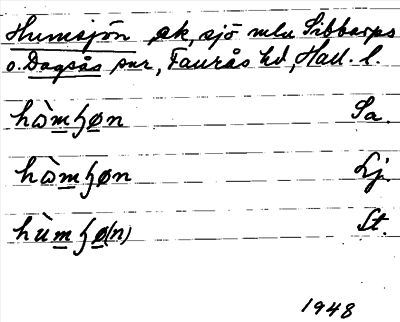 Humsjön, sk, sjö mln Sibbarps
o. Dagsås snr, Faurås hd, Hall. l.
hὼmʃøn Sa.
hὼmʃøn Lj.
hùmʃø(n) St.
1948